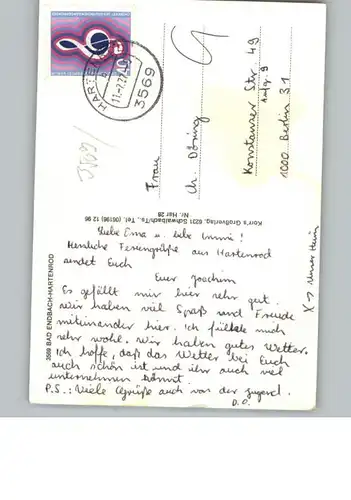 Liebe Oma u. liebe Immi!
Herzliche Feriengrüße aus Hartenrod
sendet Euch
Euer Joachim
Es gefällt mir hier sehr gut.
Wir haben viel Spaß und Freude
miteinander hier. Ich fühle mich
sehr wohl. Wir haben gutes Wetter.
Ich hoffe, daß das Wetter bei Euch
auch schön ist und ihr auch viel
unternehmen könnt.
P.S.: Viele Grüße auch von der Jugend.
D.O.
Frau
Ch. Döring
Konstanzer Str. 49
Aufg. 9
1000 Berlin 31
Korr's Großverlag, 6231 Schwalbach/Ts., Tel. (06196) 12 96
Nr. Har 28
3569 BAD ENDBACH-HARTENROD
HARTENROD
3569
40
X → Unser Heim